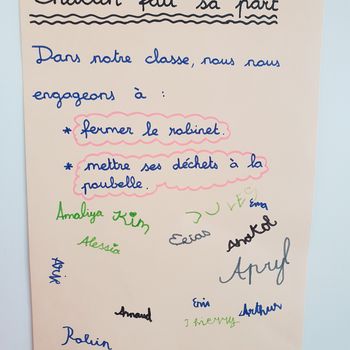 Chacun fait sa part
Dans notre classe, nous nous
engageons à :
* fermer le robinet.
* mettre ses déchets à la
poubelle.
Amaliya Kim JULES Ema
Alessia Anatol
Apryl
Arnaud Enis Arthur
Thierry
Robin